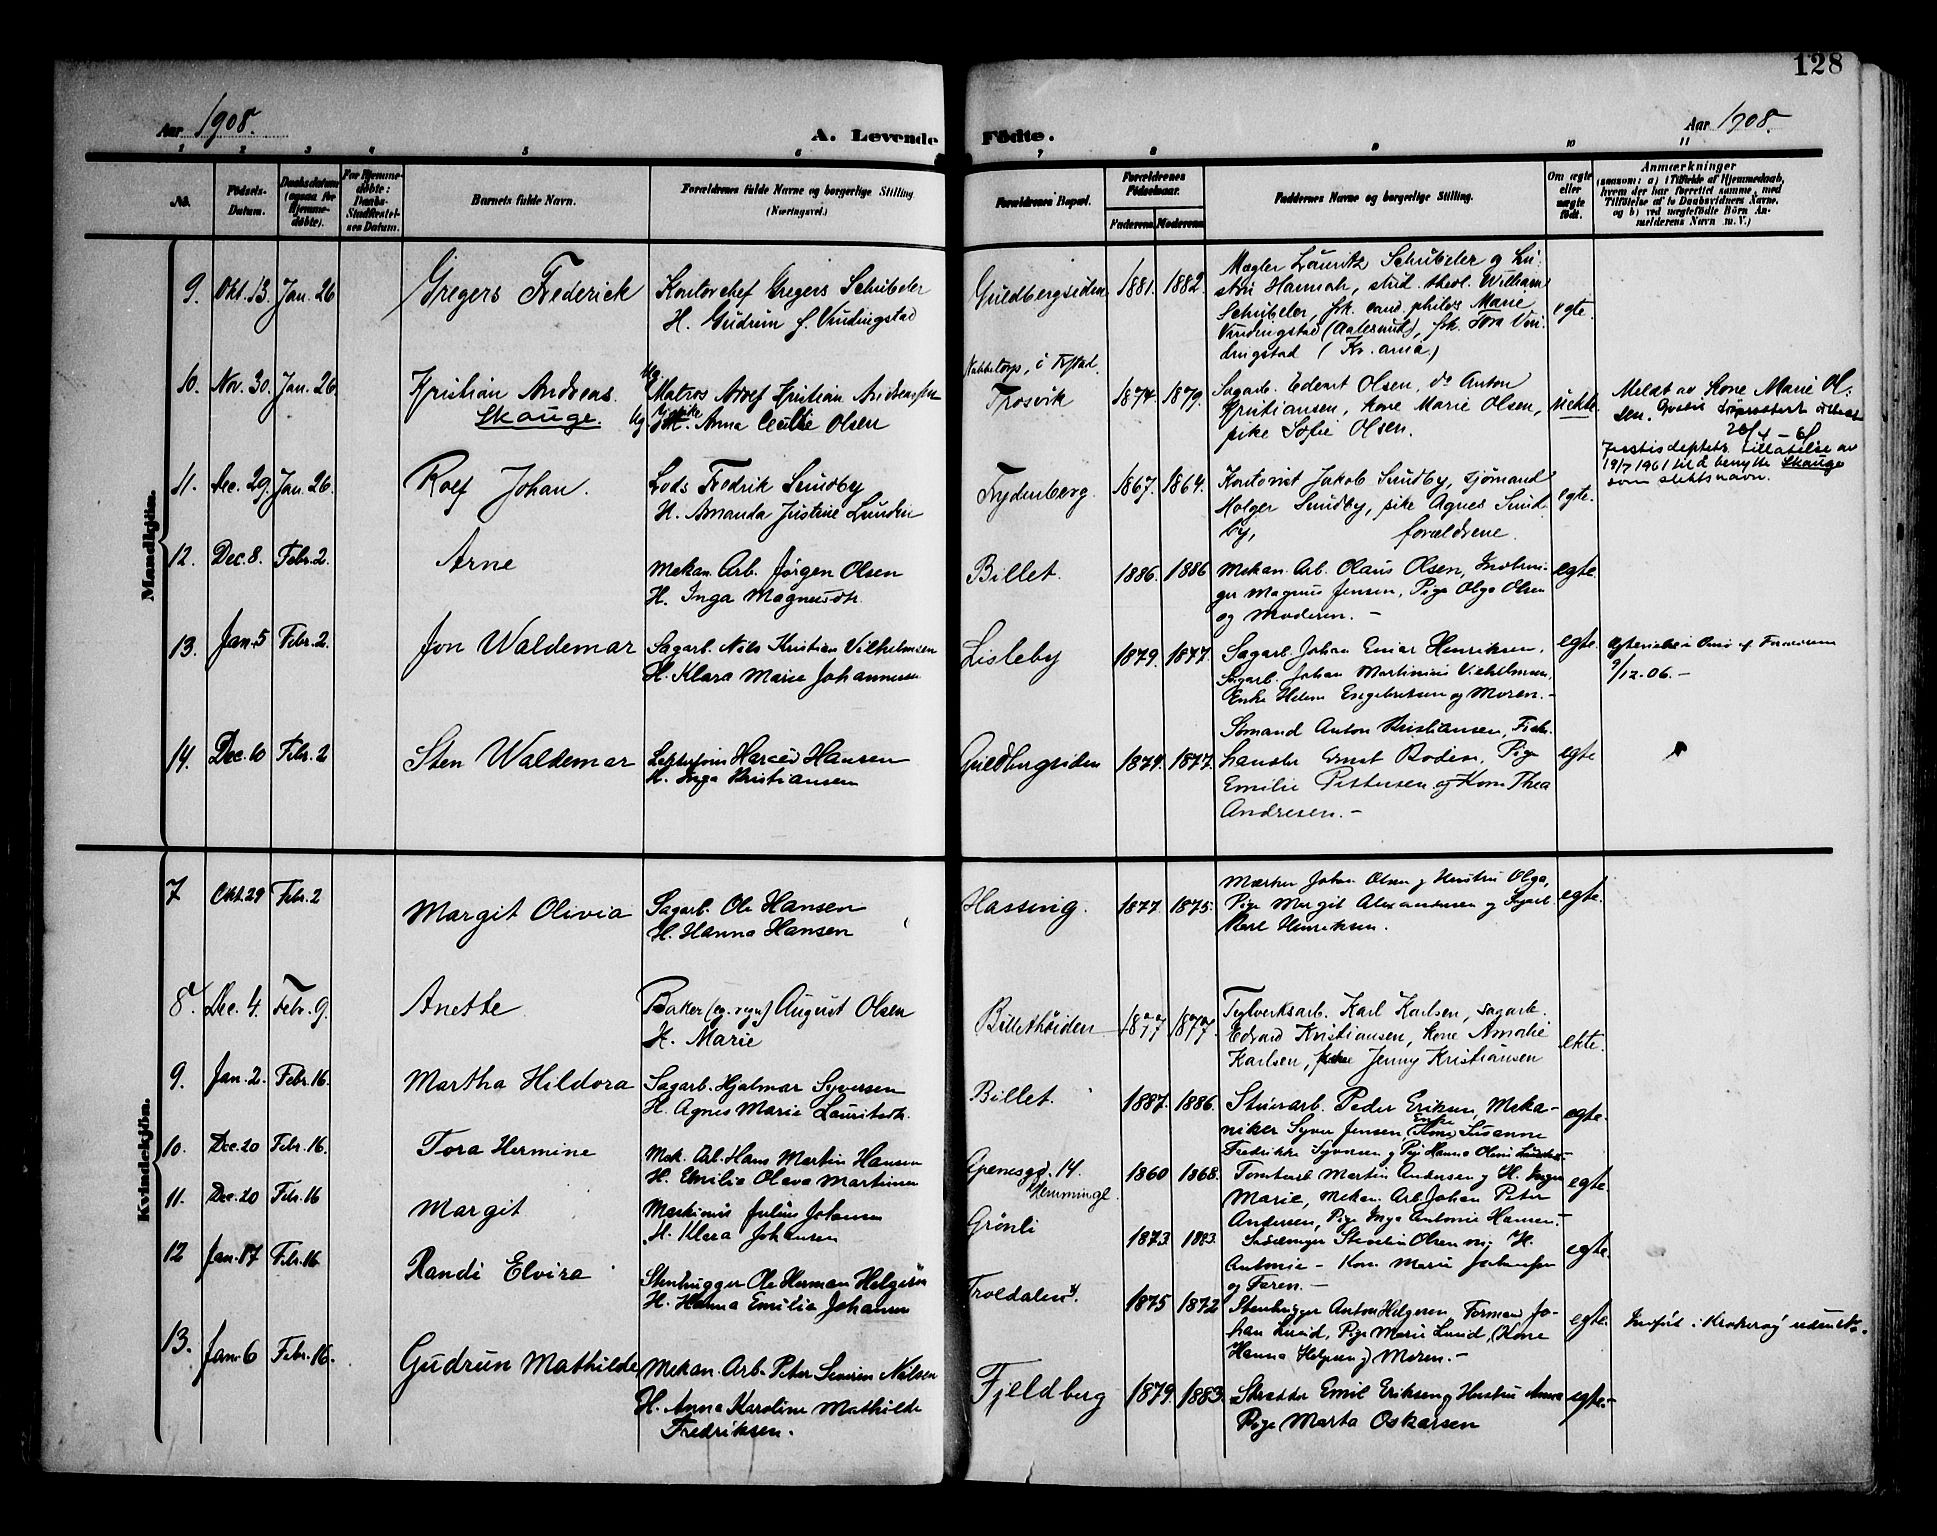 128
Aar 1908.
A. Levende Födte.
Aar 1908.
1 2 3 4 5 6 7 8 9 10 11
No.
Födsels-Datum.
Daabsdatum (ogsaa for Hjemmedöbte).
For Hjemmedöbte: Daabs-Stadfæstelses Datum.
Barnets fulde Navn.
Forældrenes fulde Navne og borgerlige Stilling (Næringsvei.)
Forældrenes Bopæl.
Forældrenes Födselsaar.
Faderens Moderens
Faddernes Navne og borgerlige Stilling.
Om ægte eller uægte födt.
Anmærkninger
(saasom: a) i Tilfælde af Hjemmedaab,
hvem der har forrettet samme, med
Tilföielse af to Daabsvidners Navne.
og b) ved uægtefödte Börn An-
melderens Navn m. V.)
Mandkjön.
9. Okt. 13. Jan. 26
Gregers Frederick
Kontorchef Gregers Schübeler
H. Gudrun f. Vindingstad
Guldbergsiden
1881. 1882
Mægler Lauritz Schübeler og Hu-
stru Hannah, stud. theol. William
Schübeler, frk. cand. philos Marie
Vindingstad (Aalesund), frk. Tora Vin-
dingstad (Kr.ania)
egte.
10. Nov. 30. Jan. 26.
Kristian Andreas.
Skauge.
Ug. Matros Adolf Kristian Andreassen
Ug pike Anna Cecilie Olsen
Nabbetorp, i Tystad,
Trosvik
1874. 1879.
Sagarb. Edvart Olsen, do Anton
Kristiansen, kone Marie Olsen,
pike Sofie Olsen.
uekte.
Meldt av Kone Marie Ol-
sen.
Justisdeptets tillatelse av
19/7 1961 til å benytte Skauge
som slektsnavn.
11. Dec. 29. Jan. 26.
Rolf Johan.
Lods Fredrik Sundby
H. Amanda Justine Lunden
Frydenberg.
1867. 1864.
Kontorist Jakob Sundby, sjömand
Holger Sundby, pike Agnes Sund-
by, forældrene.
egte.
12. Dec. 8. Febr. 2.
Arne
Mekan. Arb. Jørgen Olsen
H. Inga Magnusdtr.
Billet.
1886. 1886
Mekan. Arb. Olaus Olsen,
ger Magnus Jensen, Pige Olga Olsen
og Moderen. –
egte.
13. Jan. 5 Febr. 2.
Jon Waldemar
Sagarb. Nils Kristian Vilhelmsen
H. Klara Marie Johannesen
Lisleby
1879. 1877.
Sagarb. Johan Einar Henriksen,
Sagarb. Johan Martinius Vilhelmsen,
Enke Helene Engebretsen og Moren. –
egte.
9/12-06. –
14. Dec. 10 Febr. 2
Sten Waldemar
H. Inga Kristiansen
Guldbergsiden
1879. 1877.
Sömand Anton Kristiansen, Fisk-
handler Ernst Boden, Pige
Emilie Pettersen og Kone Thea
Andresen. –
egte
Kvindekjön.
7 Okt. 29 Febr. 2
Margit Olivia
Sagarb. Ole Hansen
H. Hanna Hansen
Hassing.
1877. 1875.
Mærker Johan Olsen og Hustru Olga,
Pige Margit Alexandersen og Sagarb.
Karl Henriksen.
egte.
8. Dec. 4. Febr. 9.
Anette
Baker (eg. regn.) August Olsen
H. Marie
Billethöiden
1877 1877.
Teglverksarb. Karl Karlsen, sagarb.
Edvard Kristiansen, kone Amalie
Karlsen, pike Jenny Kristiansen
ekte.
9. Jan. 2. Febr. 16.
Martha Hildora
Sagarb. Hjalmar Syversen
H. Agnes Marie Lauritsdtr.
Billet.
1887. 1886.
Stuerarb. Peder Eriksen, Meka-
niker Syver Jensen (Kone) Enke Susanne
Fredrikke Syversen og Pige Hanna Olivie
egte.
10. Dec. 20 Febr. 16.
Tora Hermine
Mek. Arb. Hans Martin Hansen
H. Emilie Olava Martinsen
Apenesgd. 14.
Hemmingl.
1860 1868.
Tomtearb. Martin Andersen og H. Inger
Marie, Mekan. Arb. Johan Peter
Andersen, Pige Inga Antonie Hansen. –
egte.
11. Dec. 20 Febr. 16
Margit
Maskinist Julius Johansen
H. Klara Johansen
Grönli
1873 1883.
Olsen og H.
Antonie – Kone Marie
og Faren. –
egte.
12 Jan. 17 Febr. 16
Randi Elvira
Stenhugger Ole Herman Helgesen
H. Hanna Emilie Johansen
Troldalen
1875 1872
Stenhugger Anton Helgesen, Formand Jo-
han Lund, Pige Marie Lund, (Kone
Hanna Helgesen) Moren. –
egte.
13. Jan. 6 Febr. 16.
Gudrun Mathilde
Mekan. Arb. Peter Severin Nilsen
H. Anna Karoline Mathilde
Fredriksen.
Fjeldberg
1879. 1883.
Skrædder Emil Eriksen og Hustru Anna
Pige Marta Oskarsen
egte. –